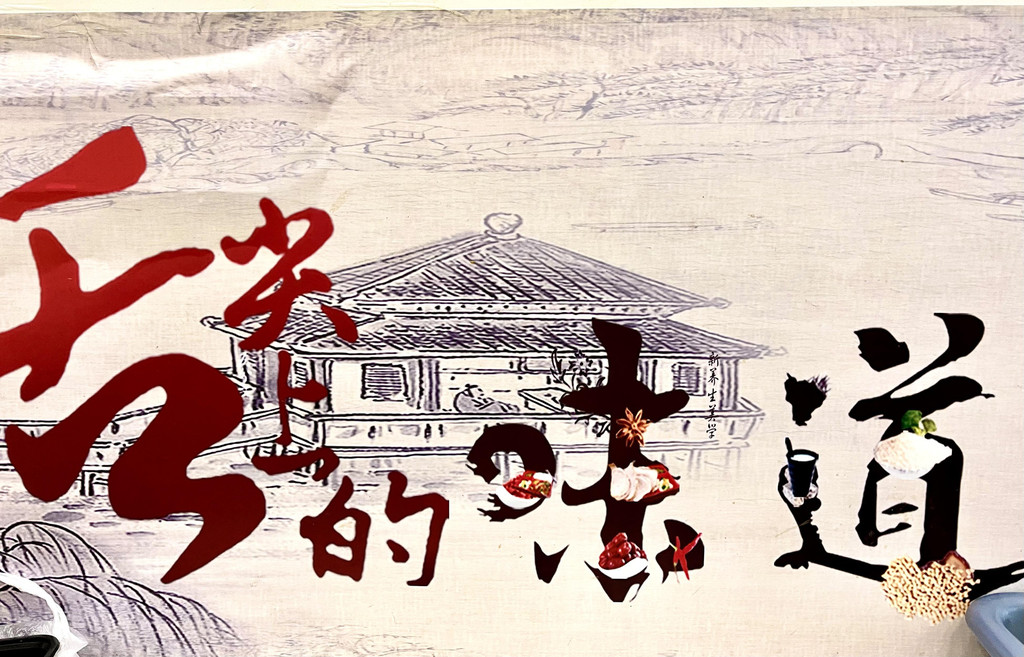 舌尖上的味道
新养生美学